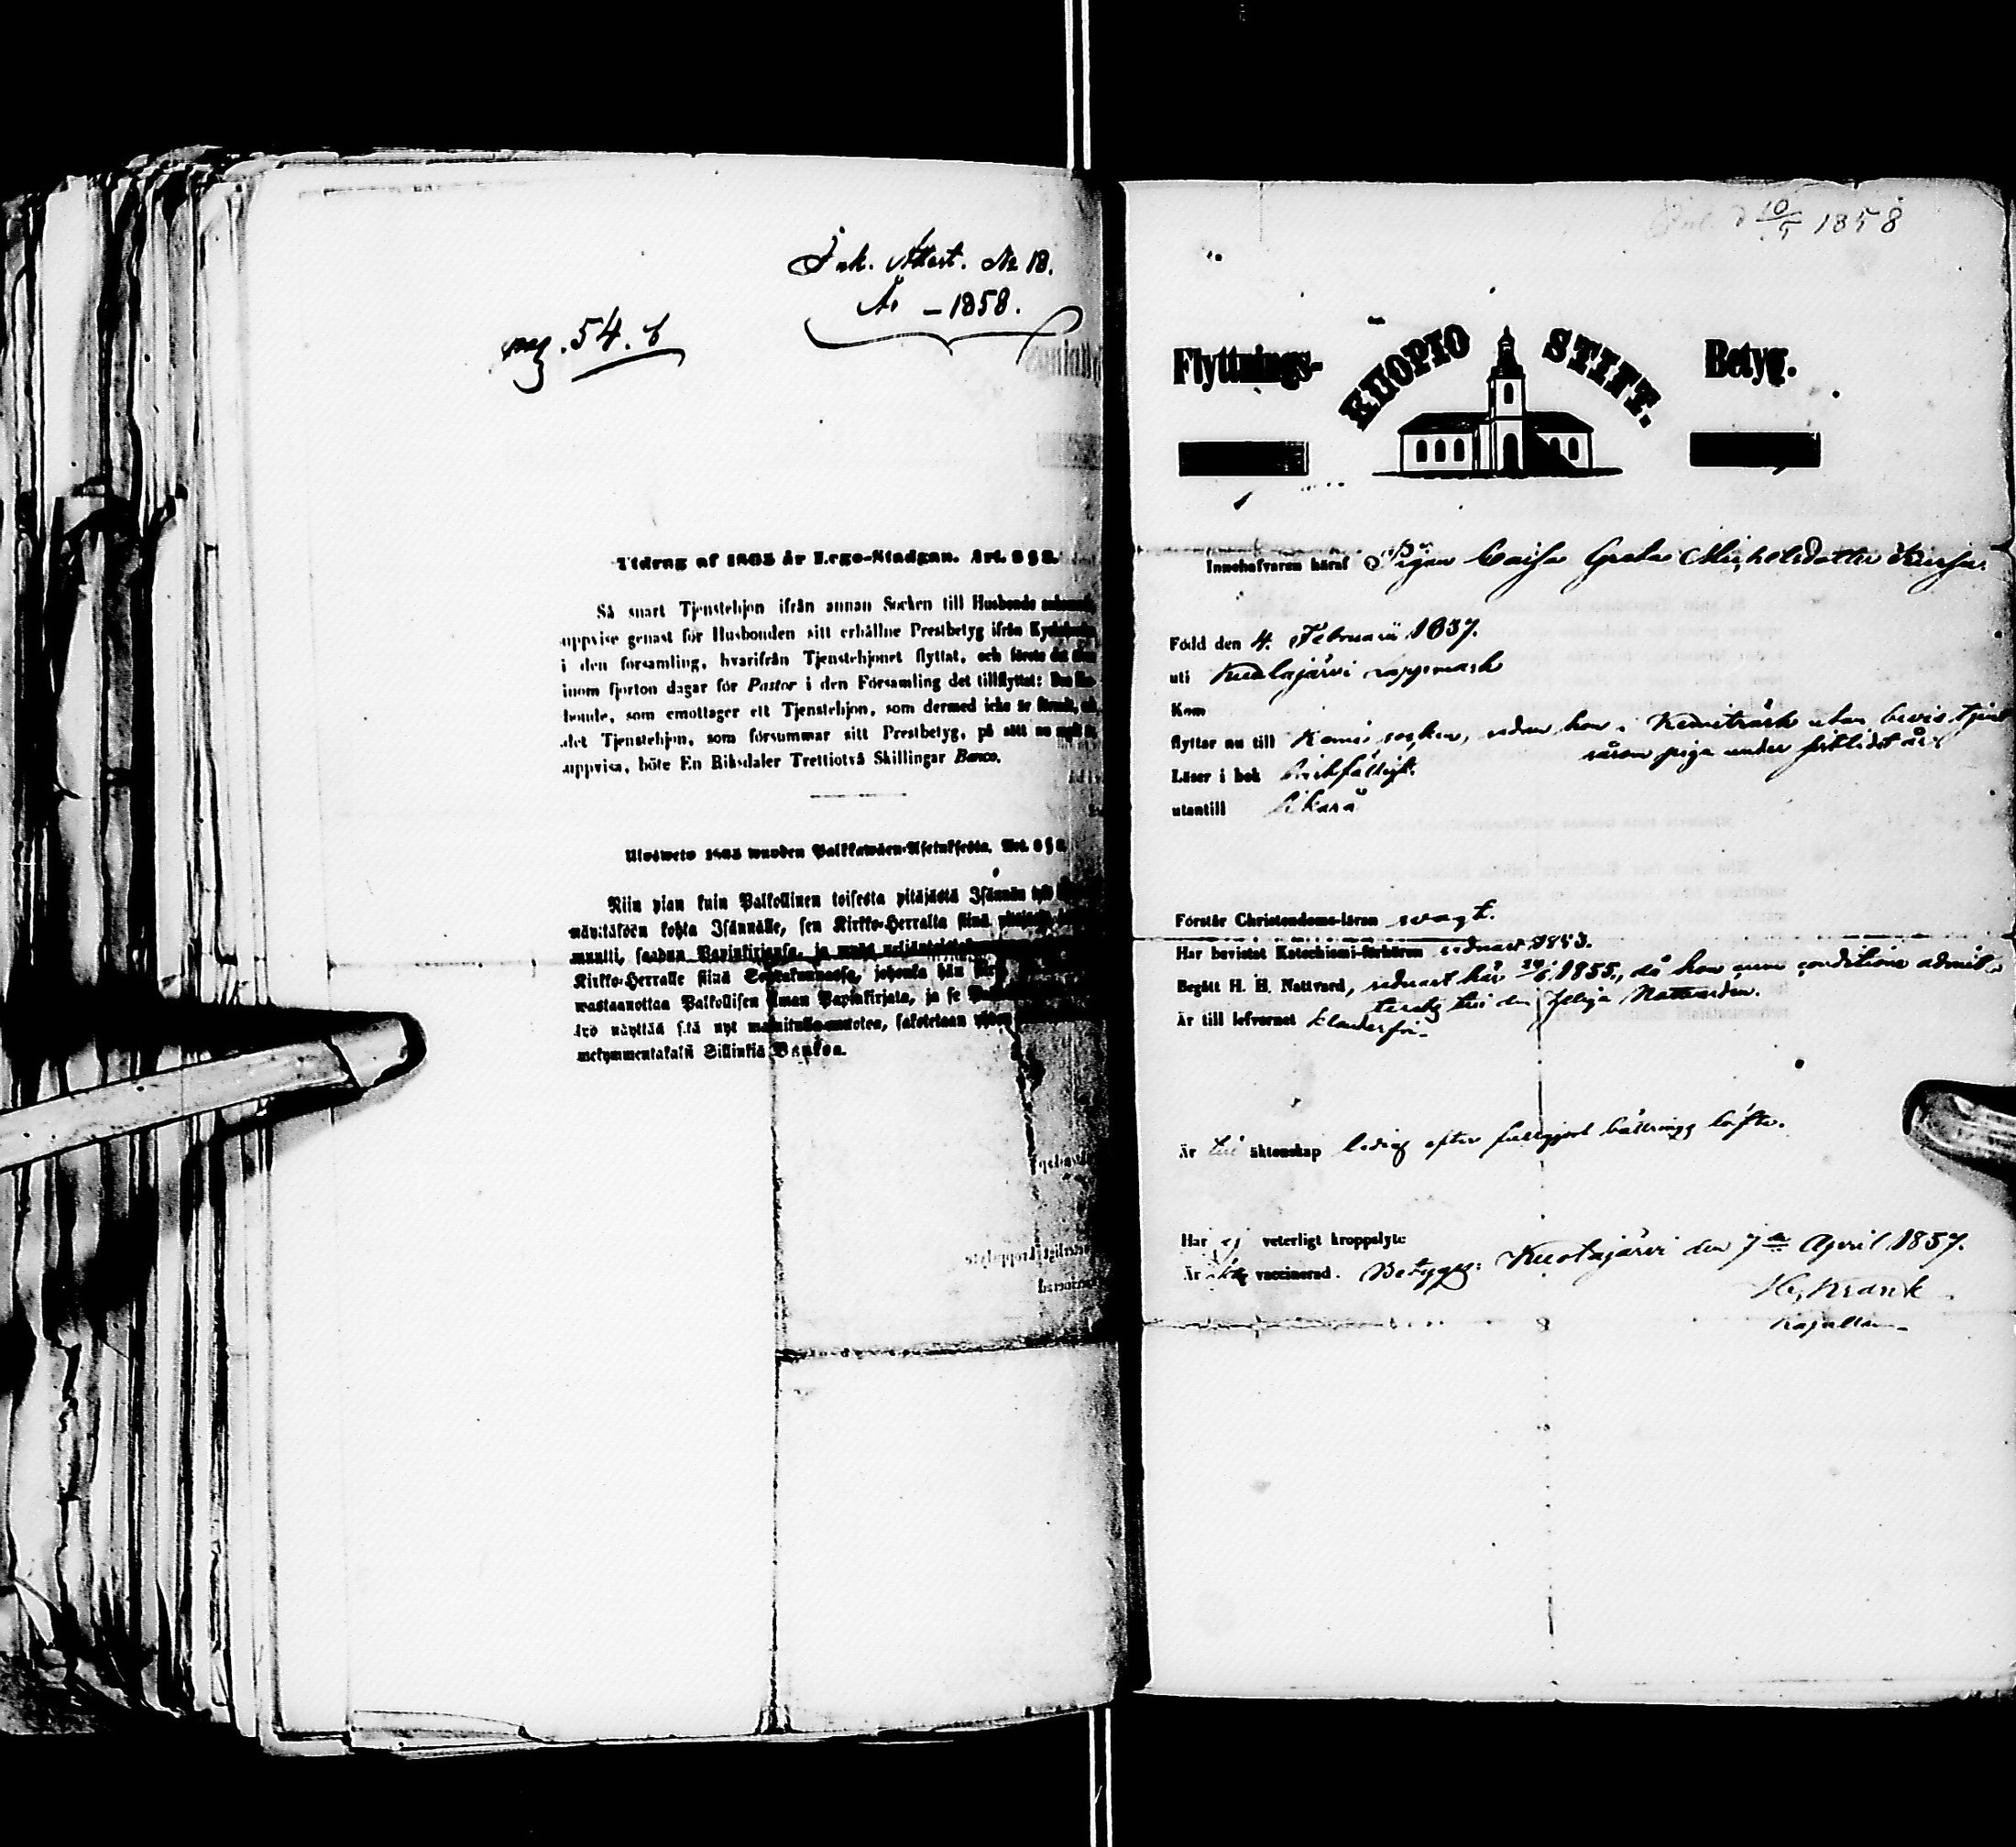 Ink. Attest. No 18.
År – 1858.
pag. 54. b
Utdrag af 1805 år Lego-Stadgan. Art. 8 § 2.
Så snart Tjenstehjon ifrån annan Socken till Husbonde
uppvise genast för Husbonden sitt erhållne Prestbetyg ifrån
i den församling, hvarifrån Tjenstehjonet flyttat, och förete det
inom fjorton dagar för Pastor i den Församling det tillflyttat:
bonde, som emottager ett Tjenstehjon, som dermed icke är
det Tjenstehjon, som försummar sitt Prestbetyg, på sätt nu
uppvisa, böte En Riksdaler Trettiotvå Skillingar Banco.
Ulosweto 1805 wuoden Palkkawäen-Asetuksesta. Art. 8 § 2.
Niin pian kuin Palkollinen toisesta pitäjästä Isännän
näyttäköön kohta Isännälle, sen Kirkko-Herralta siinä
muutti, saadun Papinkirjansa, ja
Kirkko-Herralle siinä Seurakunnassa, johonka hän
wastaanottaa Palkollisen ilman Papinkirjata, ja se
lyö näyttää sitä nyt mainitulla muotoa, sakotetaan
mekymmentäkaksi Sillinkiä Bankoa.
Inl. d 10/5 1858
Flyttnings- KUOPIO STIFT. Betyg.
Innehafvaren häraf Pigan Caisa Greta Michelsdotter
Född den 4. Februarii 1837.
uti Kuolajärvi Lappmark
Kom
flyttar nu till Kemi socken, sedan hon i Kemiträsk utan bevis tjent
såsom piga under förlidet år.
Läser i bok
utantill likaså
Förstår Christendoms-läran svagt.
Har bevistat Katechismi-förhören sednast 1853.
Begått H. H. Nattvard, sednast här 1855, då hon sum conditione admit-
terats till den Heliga Nattvarden.
Är till lefvernet klanderfri
Är till äktenskap ledig efter fullgjord bättrings löfte.
Har ej veterligt kroppslyte
Är vaccinerad. Betygar: Kuolajärvi den 7de April 1857.